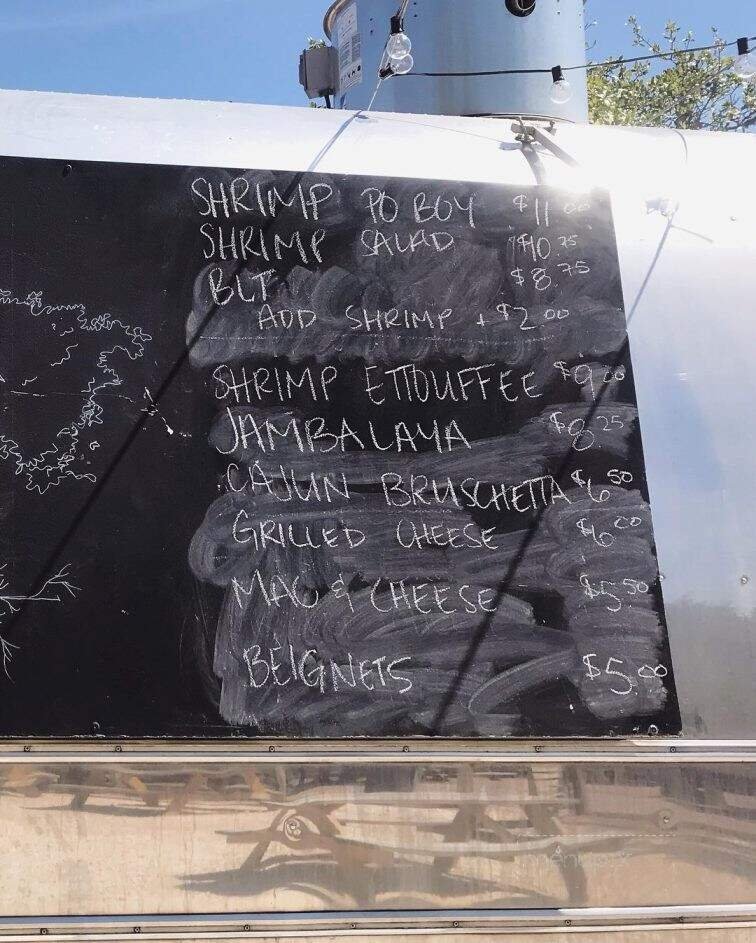 SHRIMP PO BOY $11.00
SHRIMP SALAD $10.75
BLT $8.75
ADD SHRIMP + $2.00
SHRIMP ETTOUFFEE $9.00
JAMBALAYA $8.25
CAJUN BRUSCHETTA $6.50
GRILLED CHEESE $6.00
MAC & CHEESE $5.50
BEIGNETS $5.00